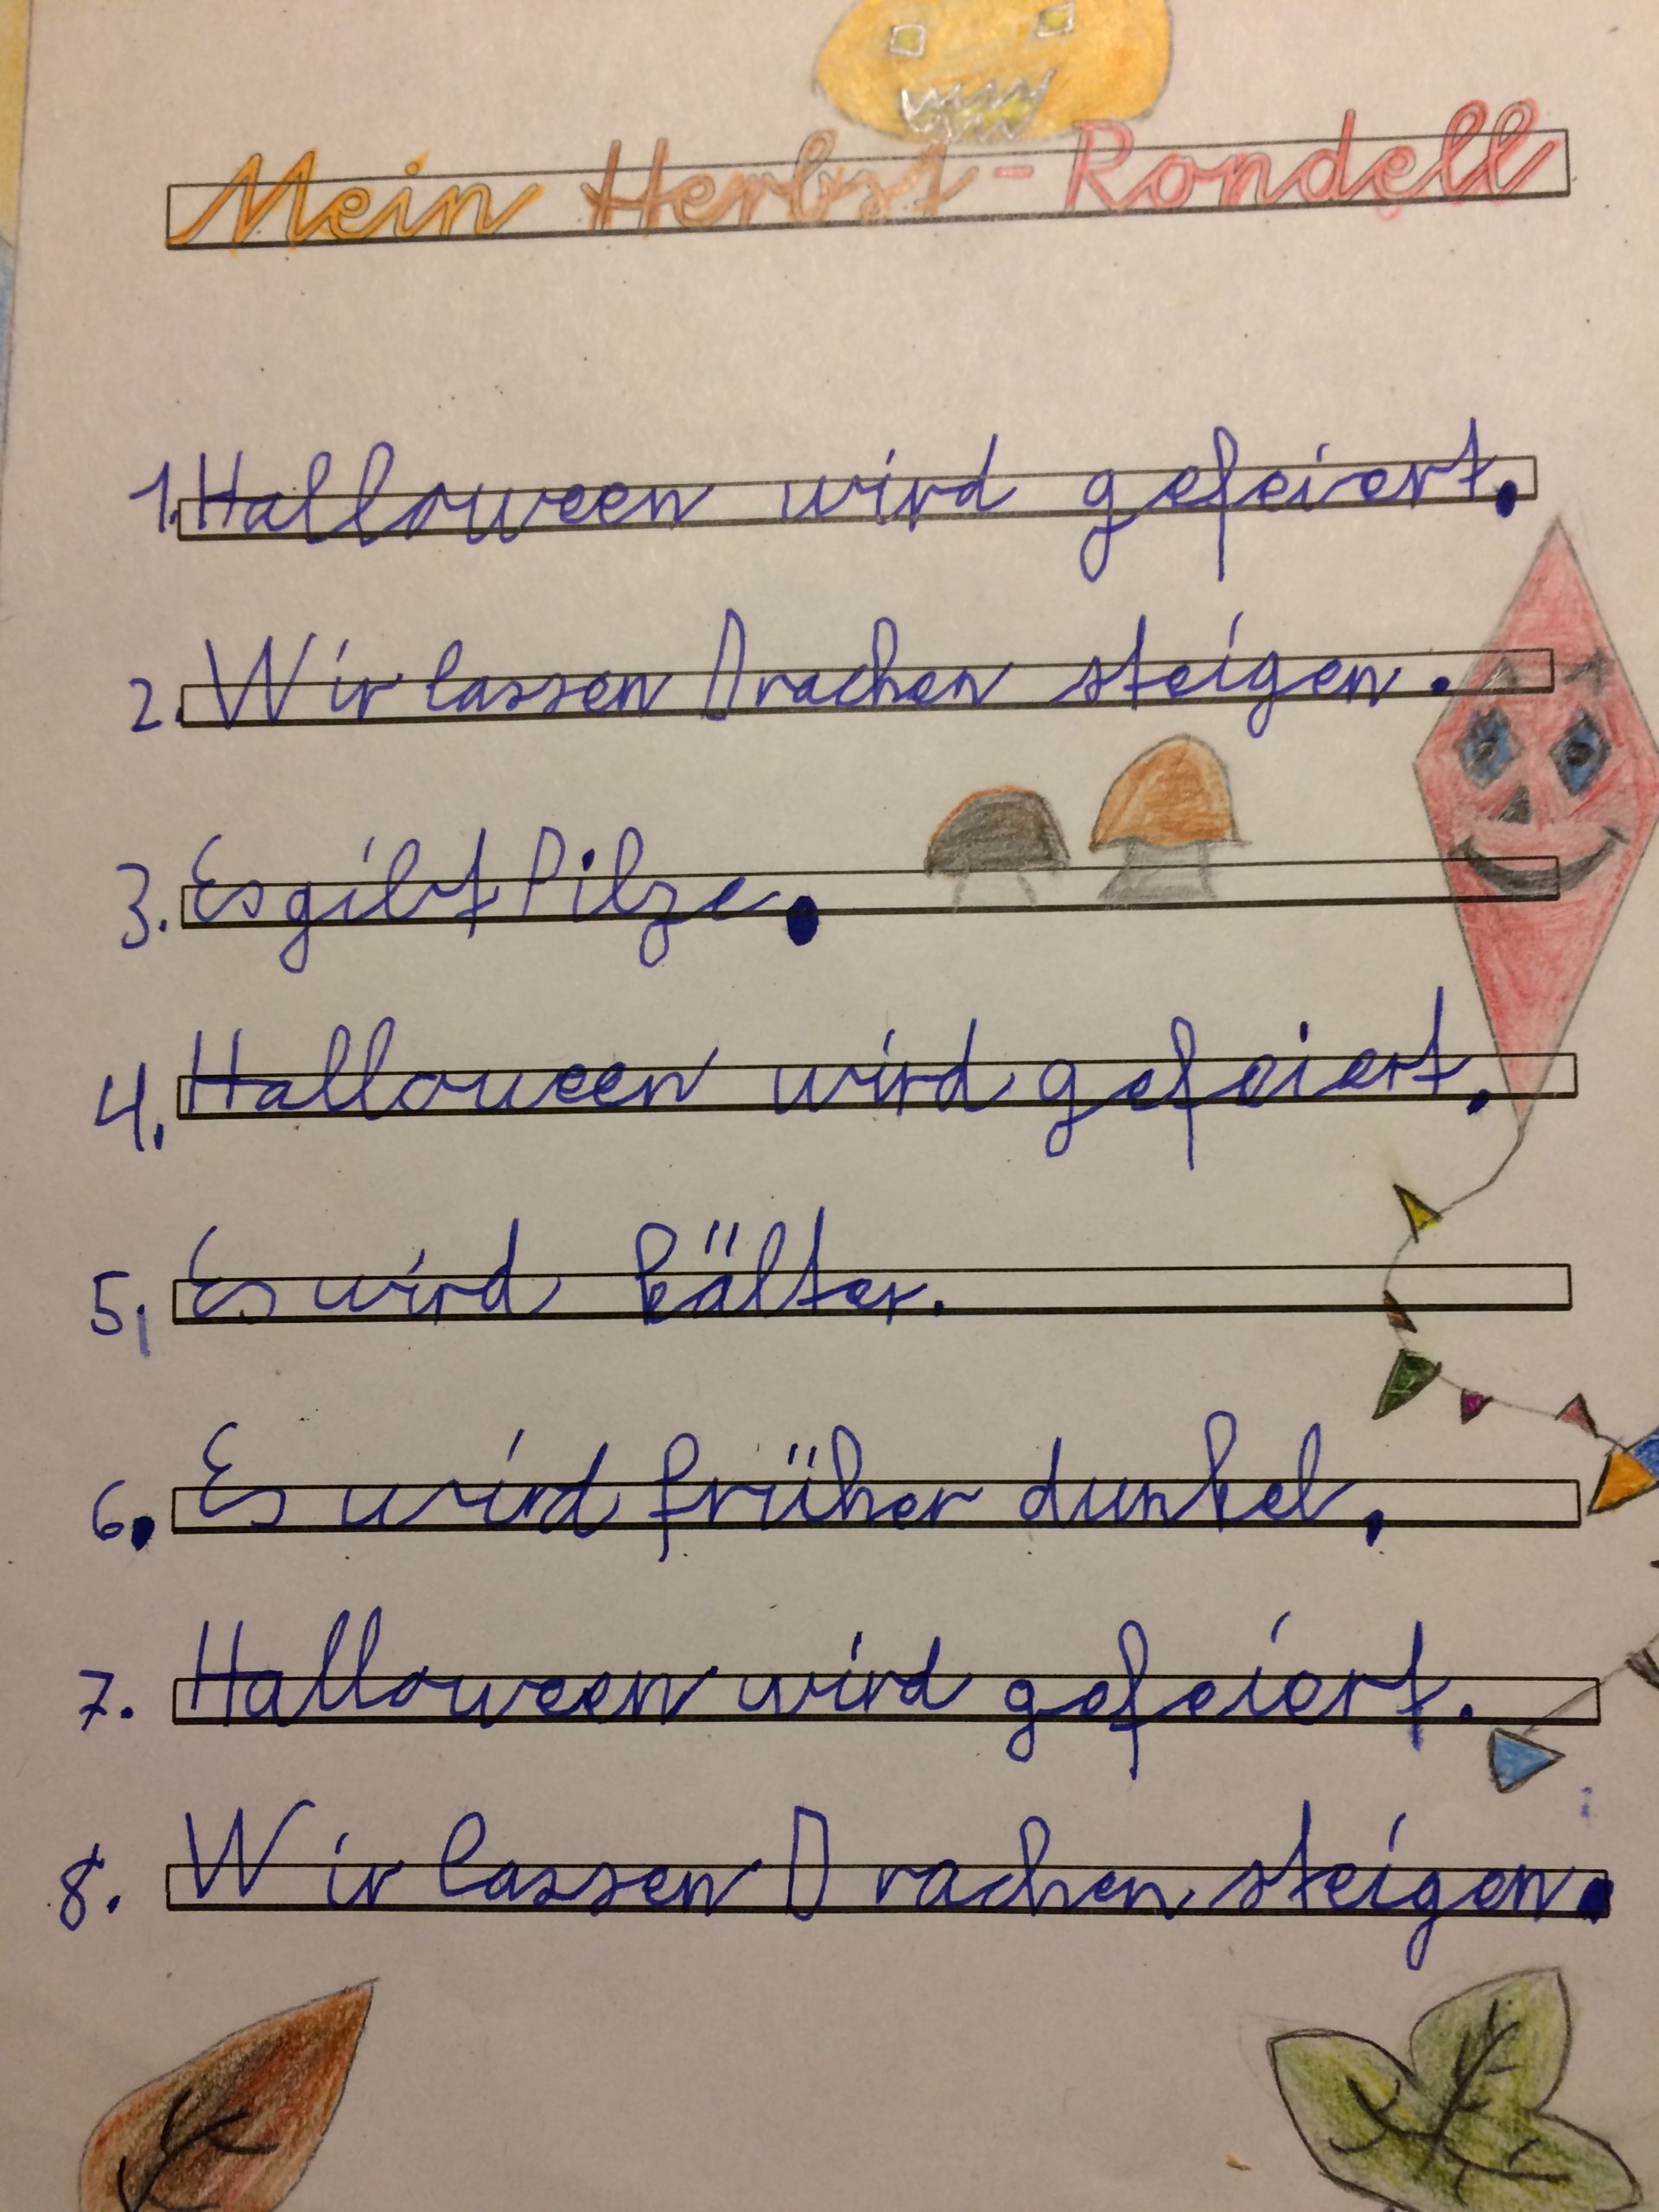 Mein Herbst-Rondell
1. Halloween wird gefeiert.
2. Wir lassen Drachen steigen.
3. Es gibt Pilze.
4. Halloween wird gefeiert.
5. Es wird kälter.
6. Es wird früher dunkel.
7. Halloween wird gefeiert.
8. Wir lassen Drachen steigen.